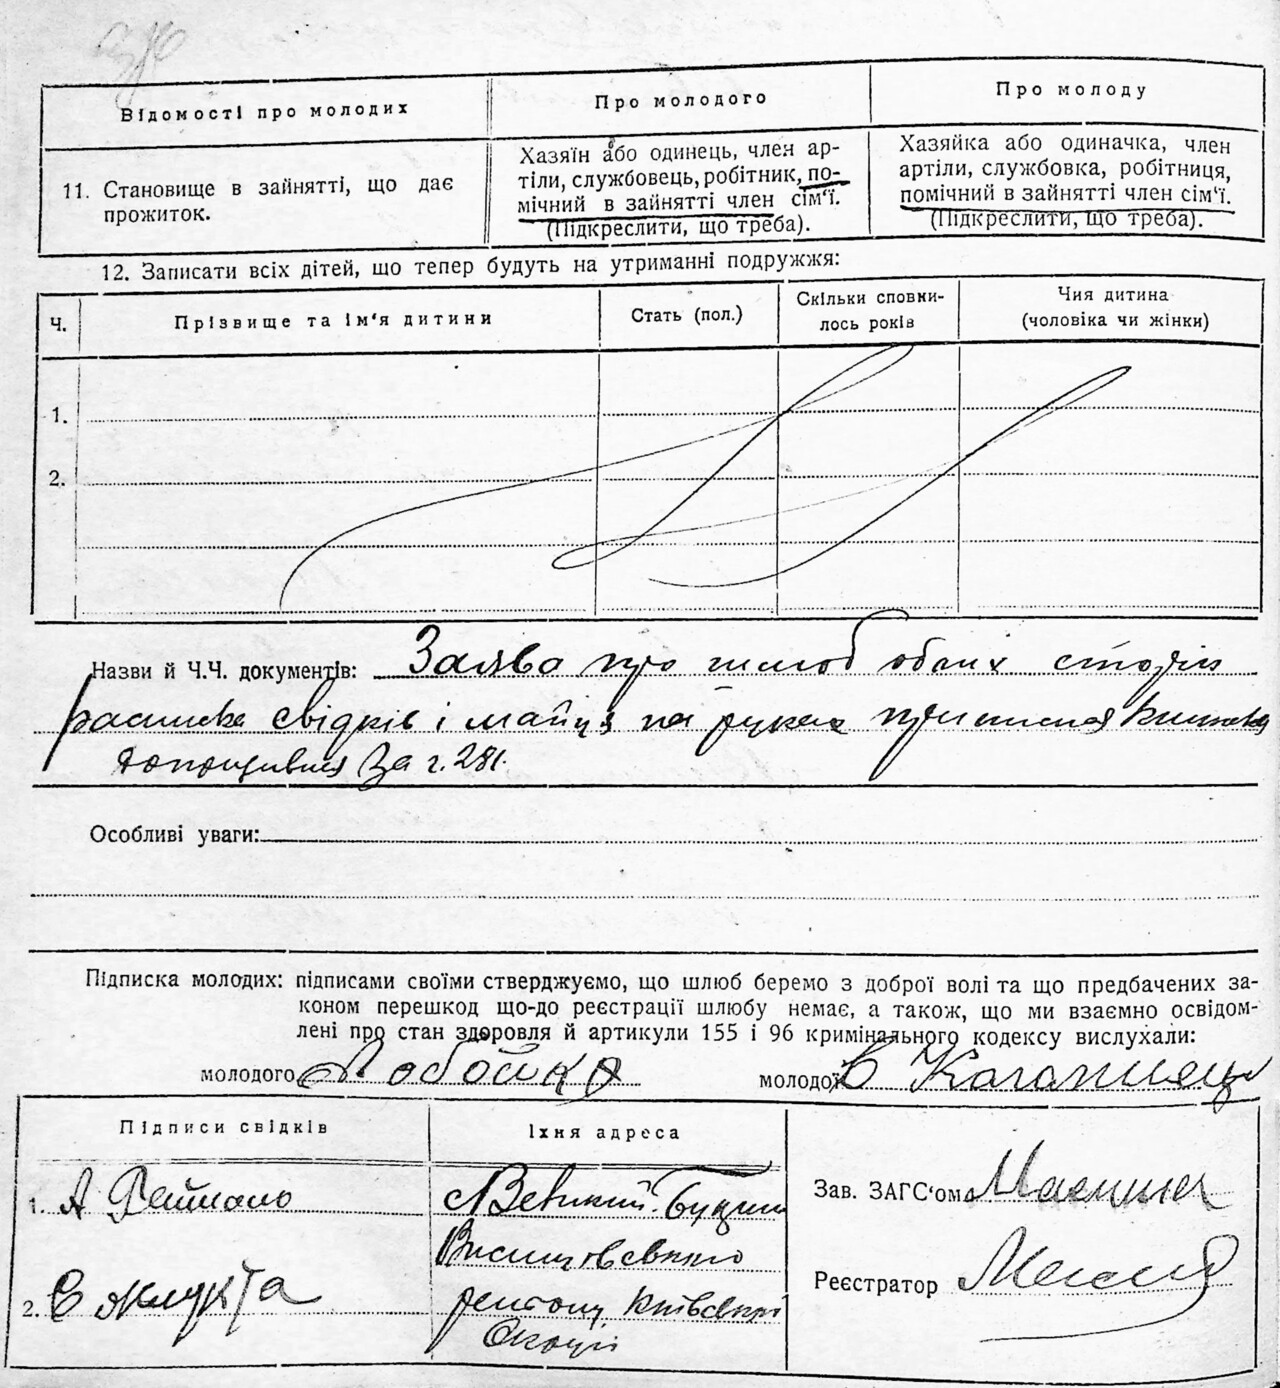 Відомості про молодих
Про молодого
Про молоду
11. Становище в зайнятті, що дає
прожиток.
Хазяїн або одинець, член ар-
тіли, службовець, робітник, по-
мічний в зайнятті член сім‘ї.
(Підкреслити, що треба).
Хазяйка або одиначка, член
артіли, службовка, робітниця,
помічний в зайнятті член сім‘ї.
(Підкреслити, що треба).
12. Записати всіх дітей, що тепер будуть на утриманні подружжя:
Ч.
Прізвище та ім‘я дитини
Стать (пол.)
Скільки сповни-
лось років
Чия дитина
(чоловіка чи жінки)
1.
2.
Назви й Ч.Ч. документів: Заява про шлюб обоих сторін
расписка свідків і
за ч. 281.
Особливі уваги:
Підписка молодих: підписами своїми стверджуємо, що шлюб беремо з доброї волі та що предбачених за-
коном перешкод що-до реєстрації шлюбу немає, а також, що ми взаємно освідом-
лені про стан здоровля й артикули 155 і 96 кримінального кодексу вислухали:
молодого Лобойко молодої
Підписи свідків
Їхня адреса
1. А
Великий Букрин
2.
району Київської
Округи
Зав. ЗАГС‘ом
Реєстратор